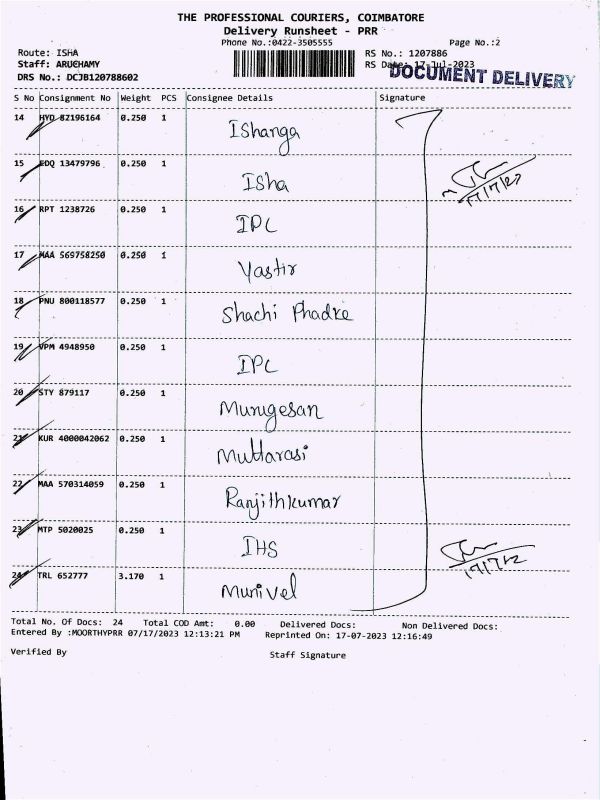 THE PROFESSIONAL COURIERS, COIMBATORE
Delivery Runsheet - PRR
Phone No.:0422-3505555 Page No.:2
Route: ISHA RS No.: 1207886
Staff: ARUCHAMY RS Date: 17-Jul-2023
DOCUMENT DELIVERY
DRS No.: DCJB120788602
S No Consignment No Weight PCS Consignee Details Signature
14 HYD 82196164 0.250 1 IShanga
15 EDQ 13479796 0.250 1 Isha
17/7/23
16 RPT 1238726 0.250 1 IPC
17 MAA 569758250 0.250 1 Yastir
18 PNU 800118577 0.250 1 Shachi Phadke
19 VPM 4948950 0.250 1 IPC
20 STY 879117 0.250 1 Murugesan
21 KUR 4000042062 0.250 1 Muttarasi
22 MAA 570314059 0.250 1 Ranjithkumar
23 MTP 5020025 0.250 1 IHS
24 TRL 652777 3.170 1 Munivel
Total No. Of Docs: 24 Total COD Amt: 0.00 Delivered Docs: Non Delivered Docs:
Entered By :MOORTHYPRR 07/17/2023 12:13:21 PM Reprinted On: 17-07-2023 12:16:49
Verified By Staff Signature